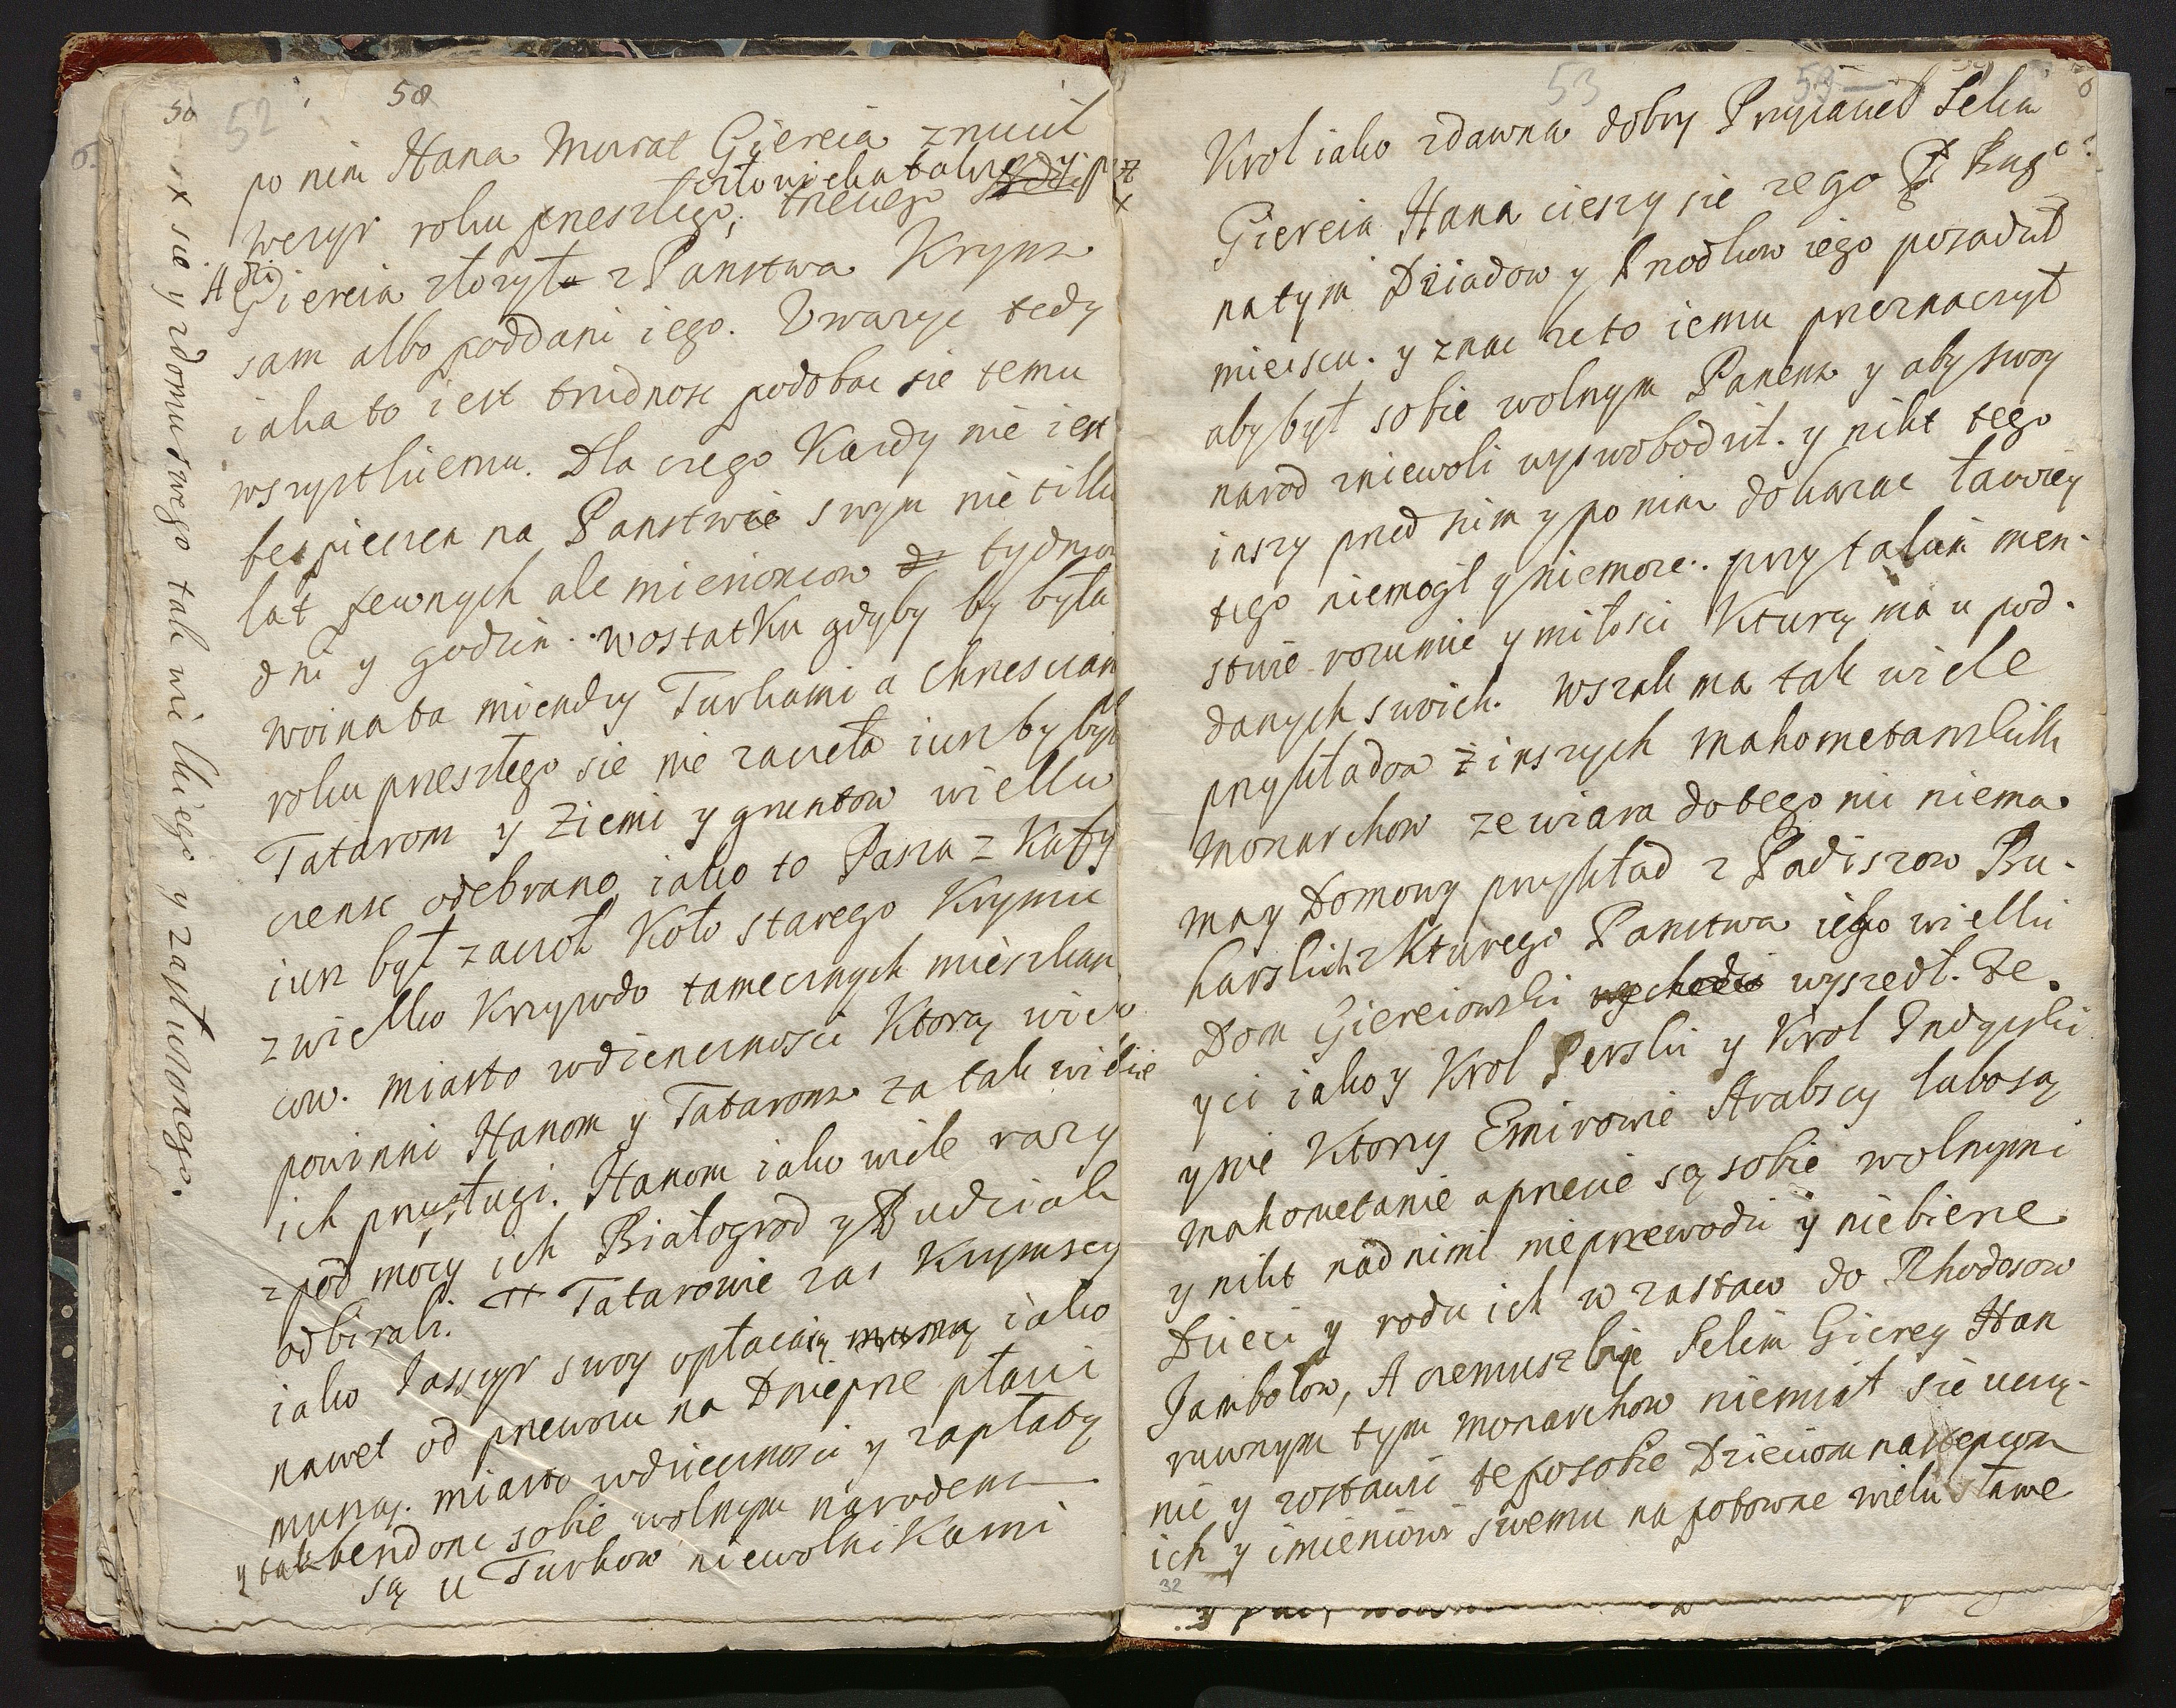 50 52 50
po nim Hana Murat Giereia zrucił
człowieka takze
wezyr roku preszlego, trzeciego
Adzi
Giereia złozyła z Panstwa Krym
sam albo poddani iego. Uwazyc tedy
iaka to iest trudnosc podobac sie temu
wszystkiemu. Dla czego Kazdy nie iest
bespieczen na Panstwie swym nie tilko
lat pewnych ale miesioncow tydniow
dni y godzin. wostatku gdyby by była
woina ta miendzy Turkami a chrescian
roku preszłego sie nie zacieła iusz by było
Tatarom y Ziemi y gruntow wielku
czensc odebrano iako to Pasza z Kafy
iusz był zacioł Koło starego Krymu
z wielko Krzywdo tamecznych mieszkan
cow. miasto wdziencznosci Ktorą wielo
powinni Hanom y Tatarom za tak wielie
ich przysługi. Hanom iako wiele razy
z pod mocy ich Białogrod y Budziak
odbirali. # Tatarowie zas Krymscy
iako Jassyr swoy opłacaią muszą iako
nawet od prewozu na Dnieprze płaci
muszą. miasto wdziecznosci y zapłaty
y tak bendonc sobie wolnym narodem
są u Turkow niewolnikami
x sie y zdomu swego tak wielkiego y zasłuzonego.
53 53
Krol iako zdawna dobry Przyiaciel Selim
Giereia Hana cieszy sie ze go P Bug
natym Dziadow y Przodkow iego posadził
mieiscu. y znac ze to iemu przeznaczył
aby był sobie wolnym Panem y aby swoy
narod zniewoli wyswobodził. y nikt tego
inszy pred nim y po nim dokazac łacwiey
tego niemogł y niemoze. przy takim men-
stwie rozumie y miłosci Kturą ma u pod-
danych swoich. Wszak ma tak wiele
przykładow z inszych mahometanskich
Monarchow ze wiara do tego nic niema
may Domowy przykład z Padiszow Bu-
harskich z Kturego Panstwa iego wielki
Dom Giereiowski wychodzi wyszedł. Ze
y ci iako y Krol Perski y Krol Indyiski
y nie Ktorzy Emirowie Arabscy lubo są
mahometanie a przecie są sobie wolnymi
y nikt nad nimi nieprzewodzi y niebierze
Dzieci y rodu ich w zastaw do Rhodosow
Jambołow, A czemusz by Selim Gierey Han
ruwnym tym monarchow niemiał sie uczy-
nic y zostawic te po sobie Dzieciom nastempcom
ich y imieniowi swemu na potomne wieki sławe
32